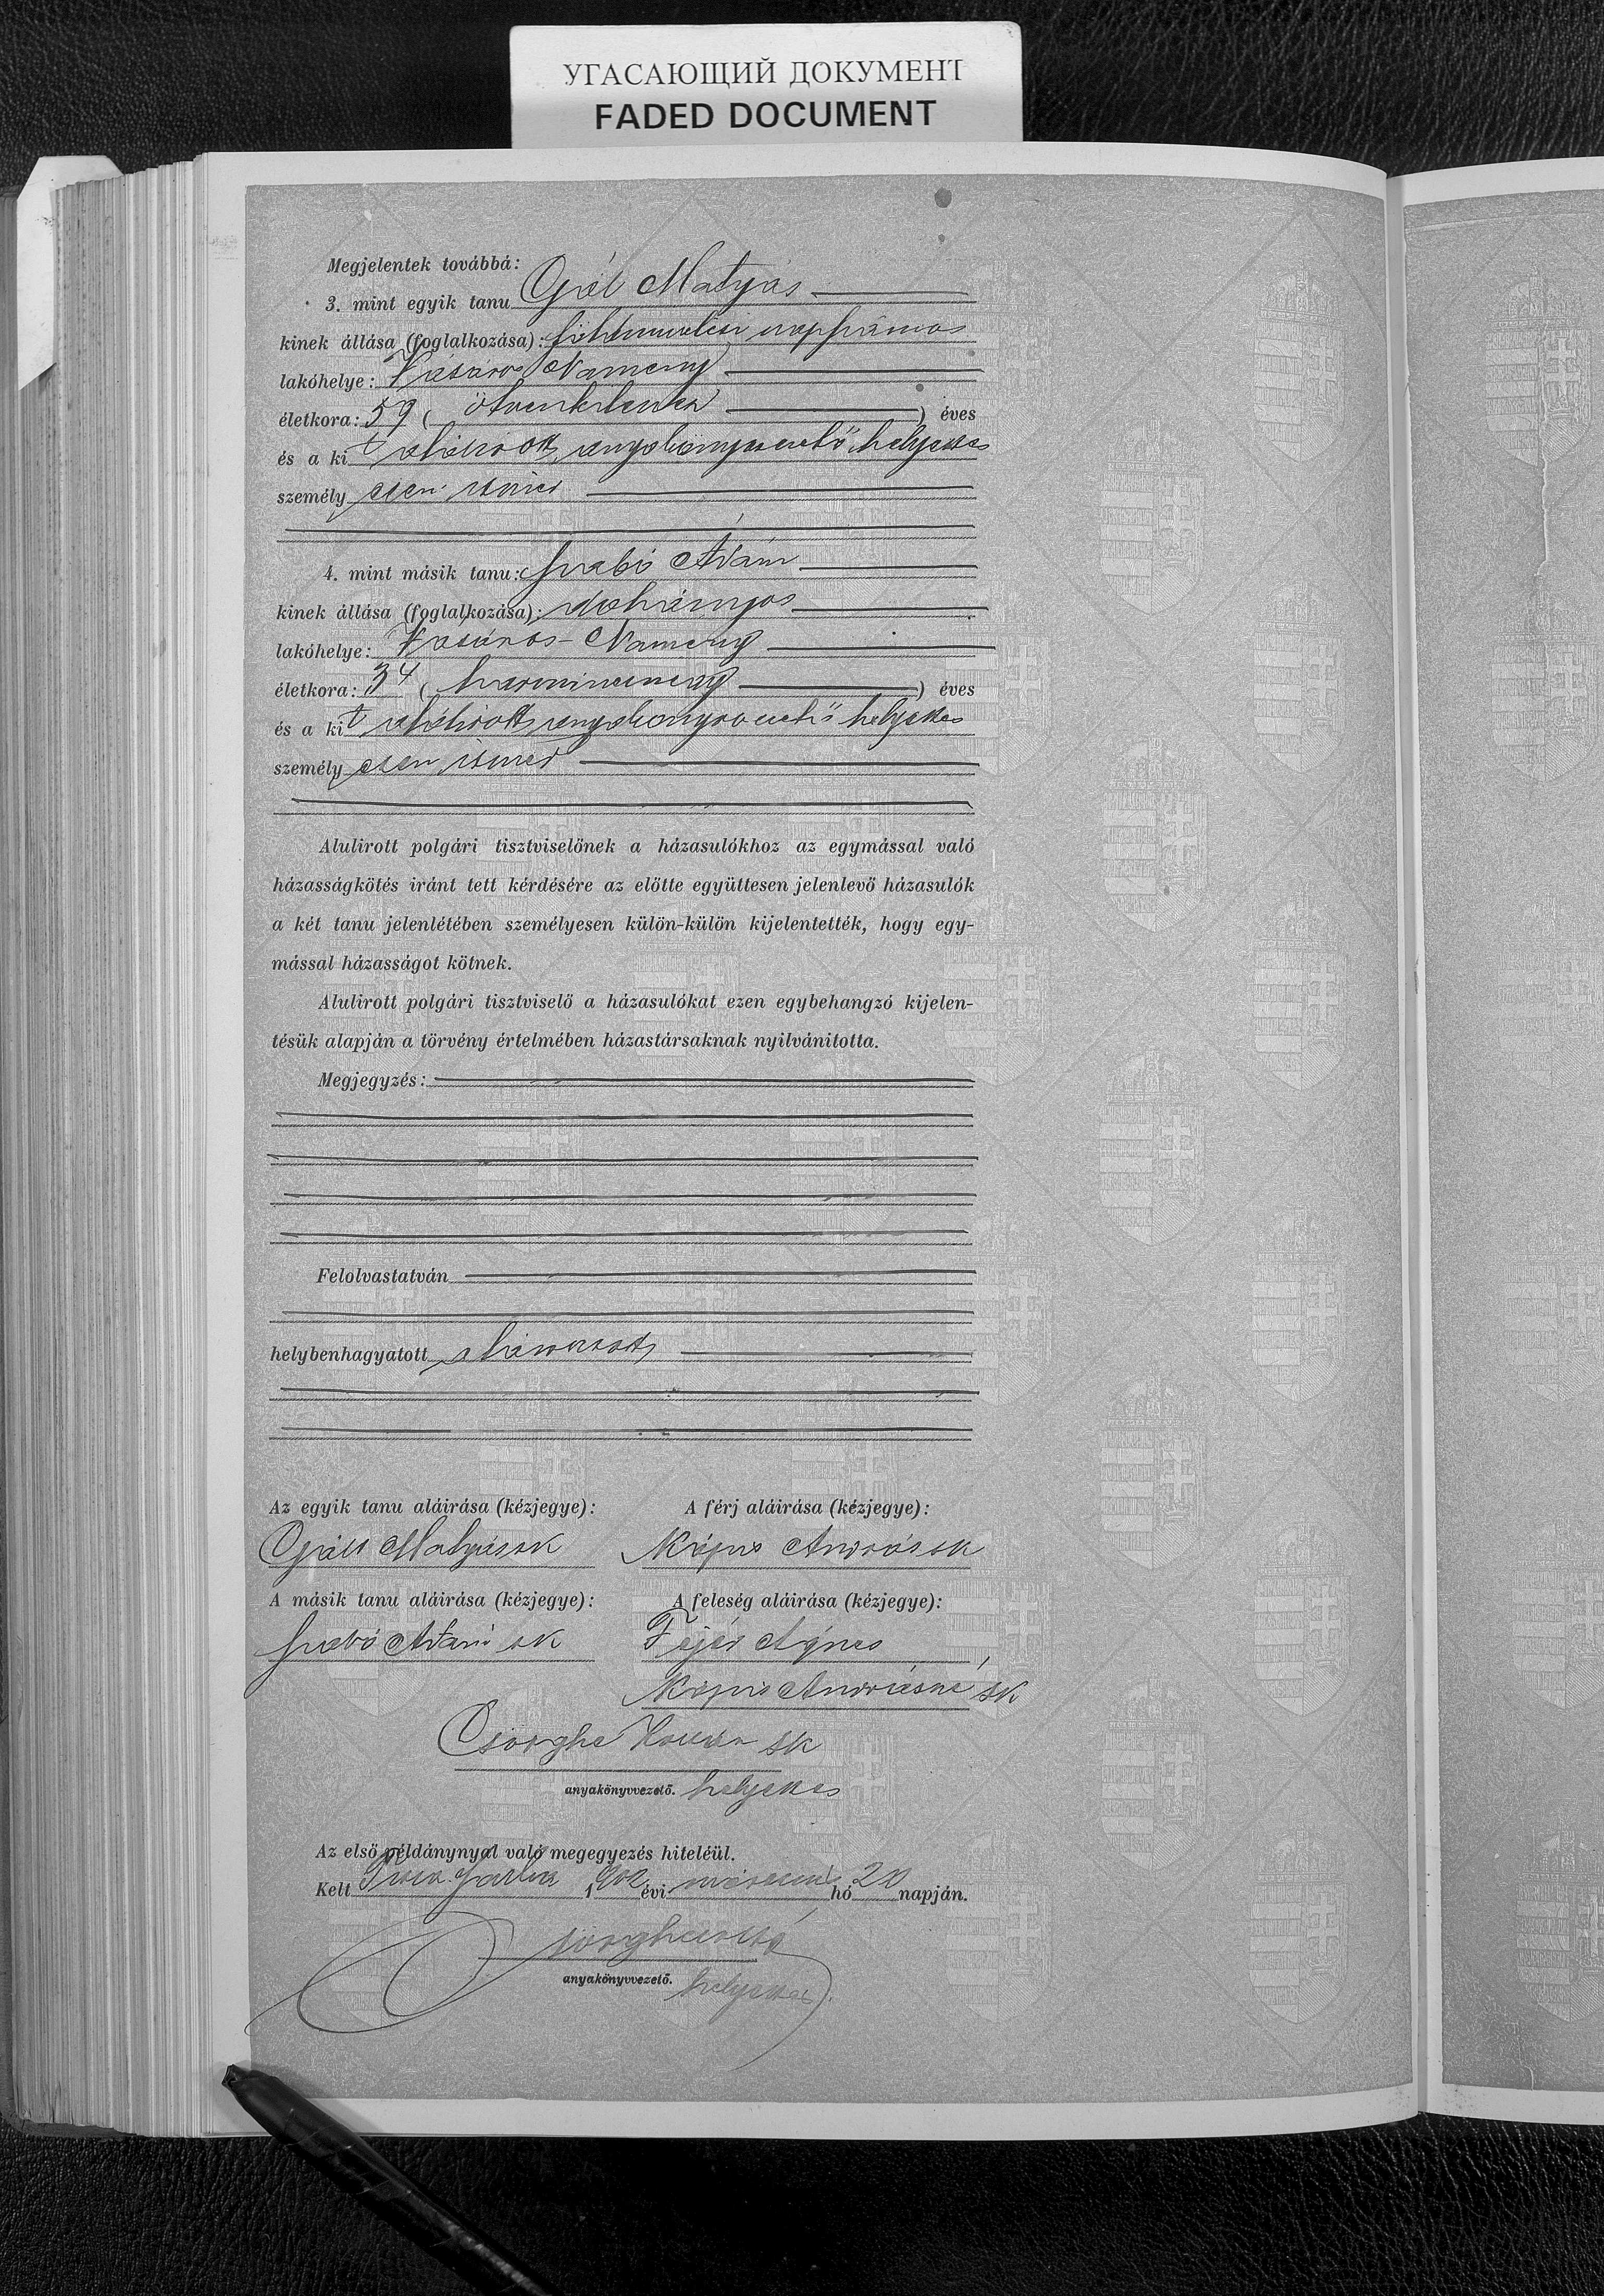 УГАСАЮЩИЙ ДОКУМЕНТ
FADED DOCUMENT
Megjelentek továbbá:
3. mint egyik tanu Gál Matyás
kinek állása (foglalkozása): földmivelési napszámos
lakóhelye: Vásáros Namény
életkora: 59 ( ötvenkilencz ) éves
és a kit alólirott anyakönyvvezető helyettes
személyesen ismer
4. mint másik tanu: Szabó Ádám
kinek állása (foglalkozása): dohányos
lakóhelye: Vásáros-Namény
életkora: 34 ( harmincnégy ) éves
és a kit alólirott anyakönyvvezető helyettes
személyesen ismer
Alulirott polgári tisztviselőnek a házasulókhoz az egymással való
házasságkötés iránt tett kérdésére az előtte együttesen jelenlevő házasulók
a két tanu jelenlétében személyesen külön-külön kijelentették, hogy egy-
mással házasságot kötnek.
Alulirott polgári tisztviselő a házasulókat ezen egybehangzó kijelen-
tésük alapján a törvény értelmében házastársaknak nyilvánitotta.
Megjegyzés:
Felolvastatván
helybenhagyatott aláiratott
Az egyik tanu aláirása (kézjegye): A férj aláirása (kézjegye):
Gáll Matyás sk András sk
A másik tanu aláirása (kézjegye): A feleség aláirása (kézjegye):
Szabó Ádám sk Fejér Ágnes
Andrásné sk
sk
anyakönyvvezető. helyettes
Az első példánynyal való megegyezés hiteléül.
Kelt 1902 évi márczius hó 20 napján.
anyakönyvvezető. helyettes